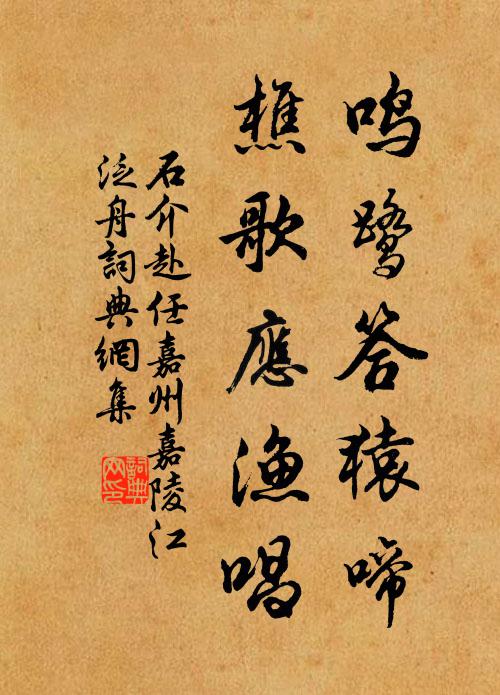 鳴鷺答猿啼
樵歌應漁唱
石介赴任嘉州嘉陵江
泛舟詞典網集
詞典網印